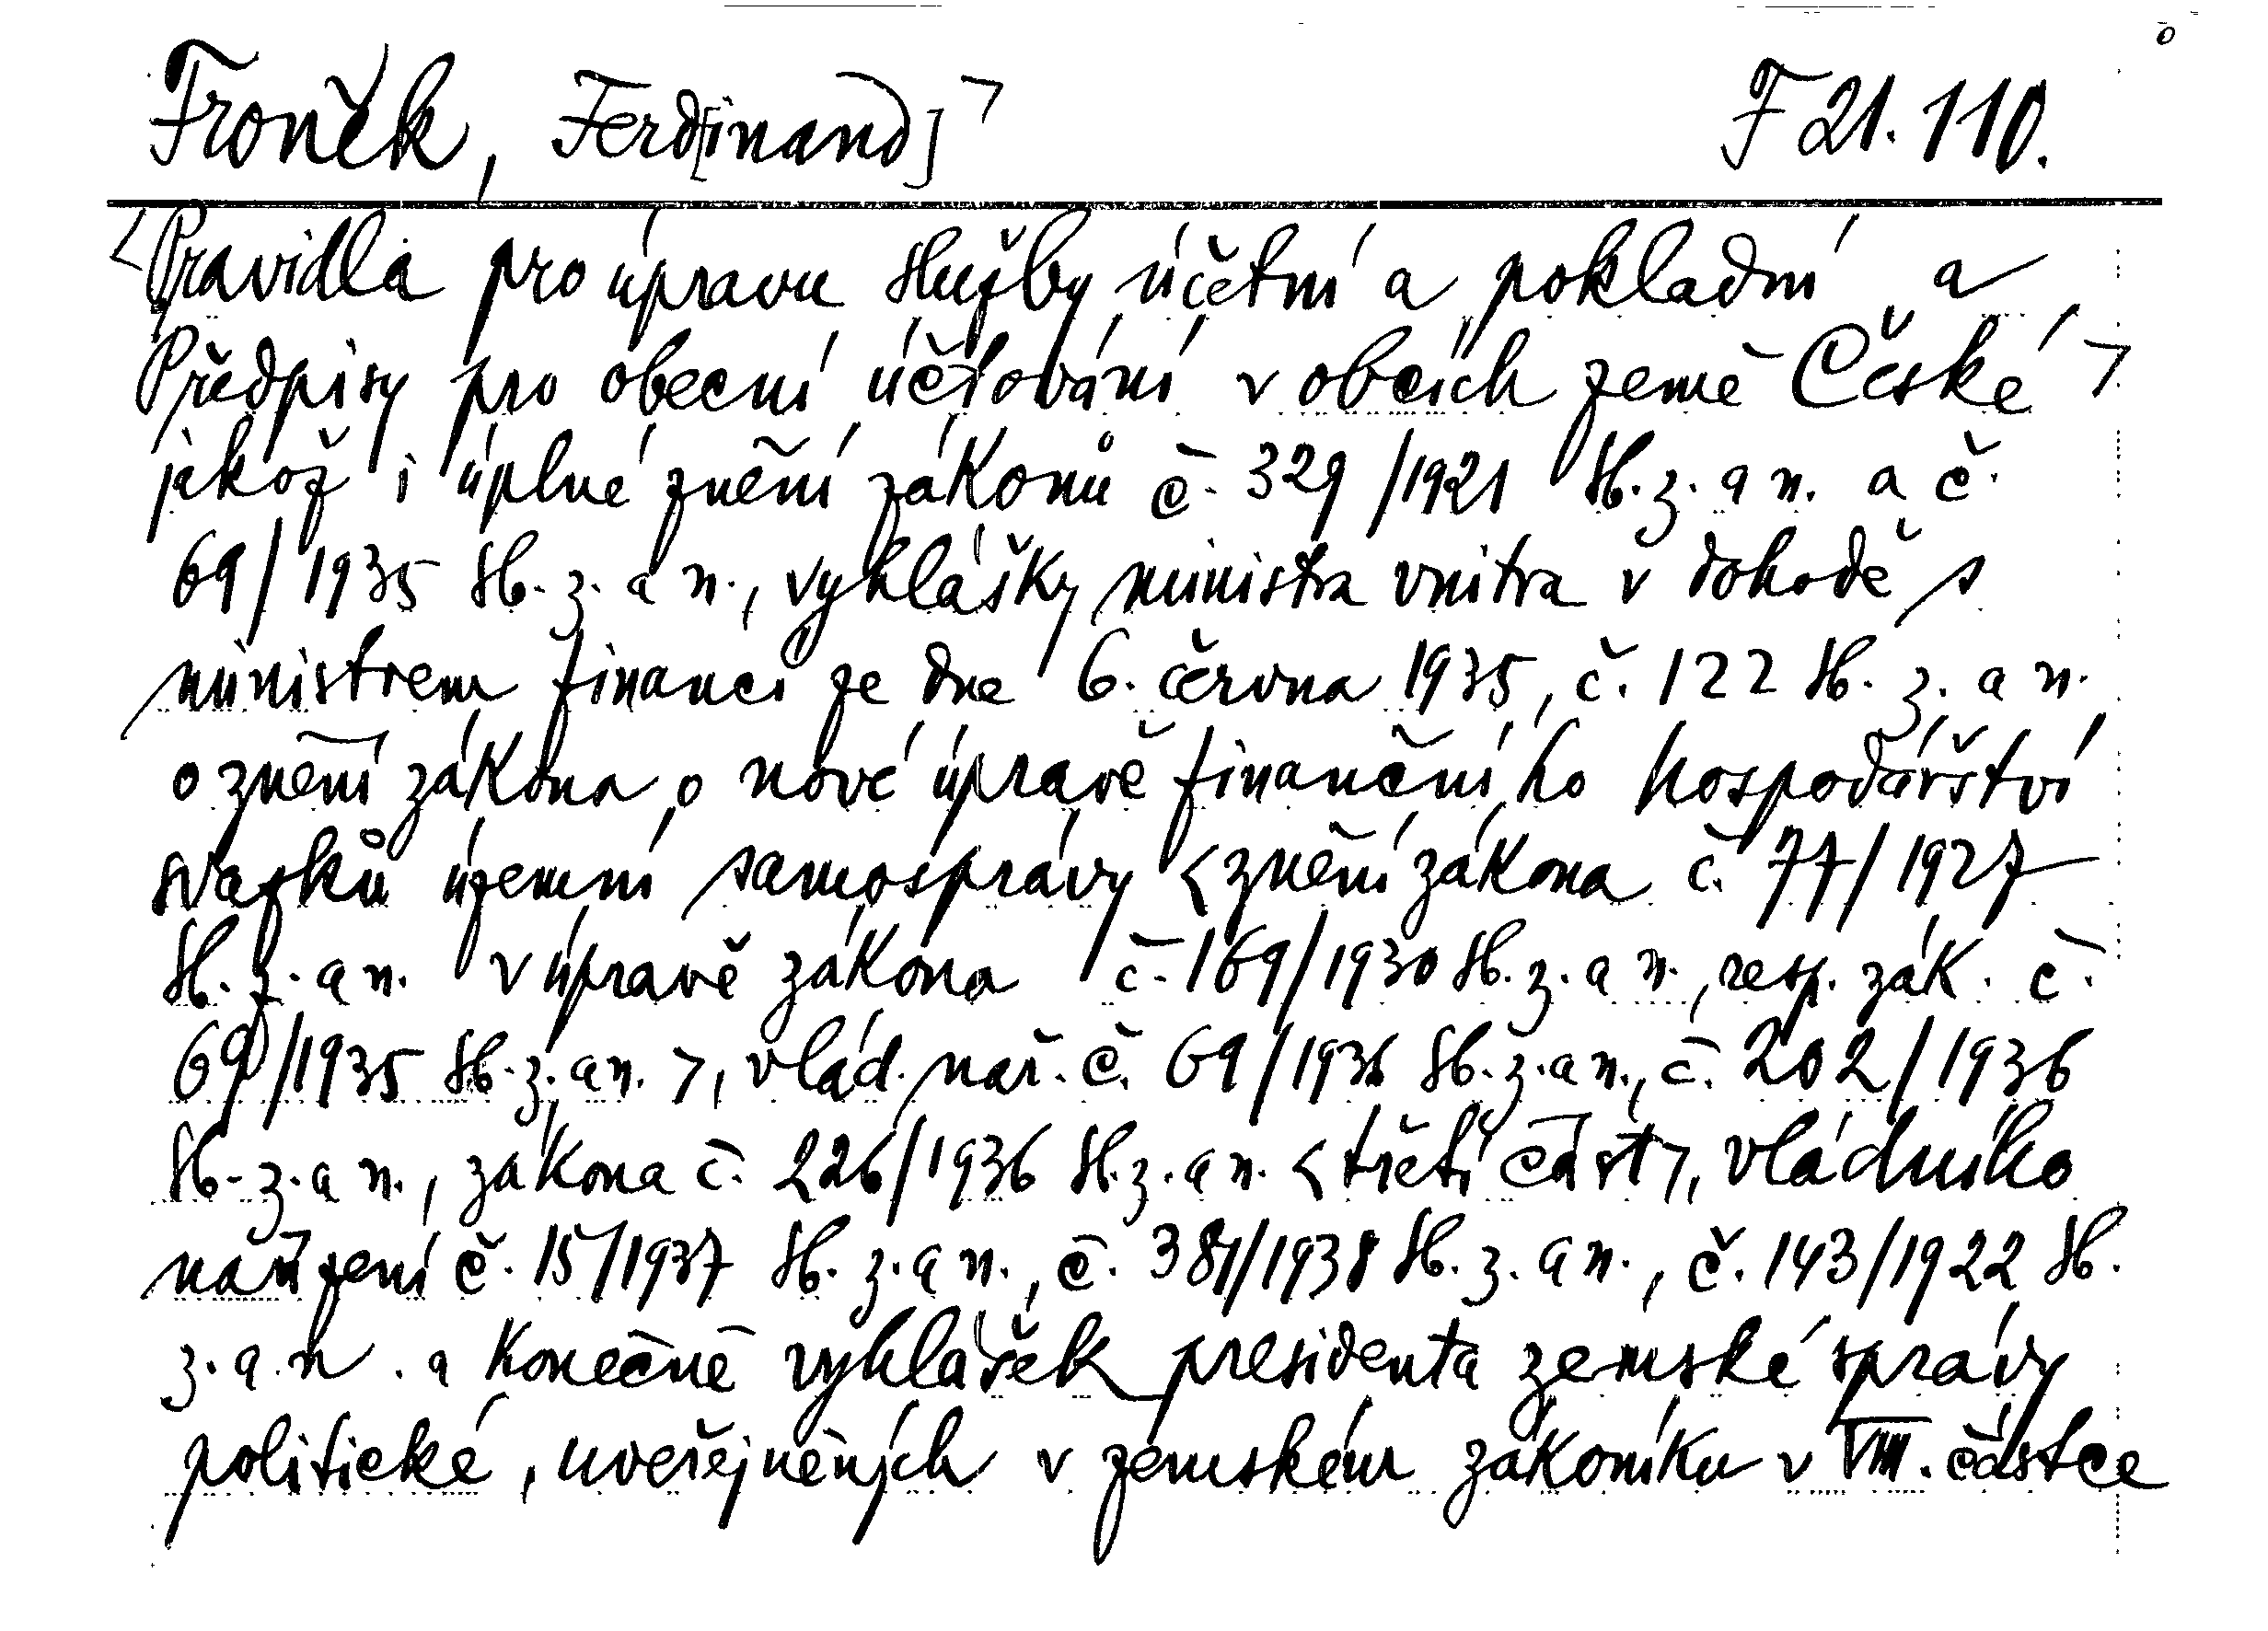 Froněk, Ferd[inand] > F 21.110.
<Pravidla pro úpravu služby účetní a pokladní a
Předpisy pro obecní účtování v obcích země České >
jakož i úplné znění zákonů č. 329/1921 Sb. z. a n. a č.
69/1935 Sb. z. a n., vyhlášky ministra vnitra v dohodě s
ministrem financí ze dne 6. června 1935, č. 122 Sb. z. a n.
o znění zákona o nové úpravě finančního hospodářství
svazků územní samosprávy <znění zákona č. 77/1927
Sb. z. a n. v úpravě zákona č. 169/1930 Sb. z. a n., resp. zák. č.
69/1935 Sb. z. a n. >, vlád. nař. č. 69/1936 Sb. z. a n., č. 202/1936
Sb. z. a n., zákona č. 226/1936 Sb. z. a n. <třetí část>, vládního
nařízení č. 15/1937 Sb. z. a n., č. 381/1938 Sb. z. a n., č. 143/1922 Sb.
z. a n. a konečně vyhlášek presidenta zemské správy
politické, uveřejněných v zemském zákoníku v VIII. částce